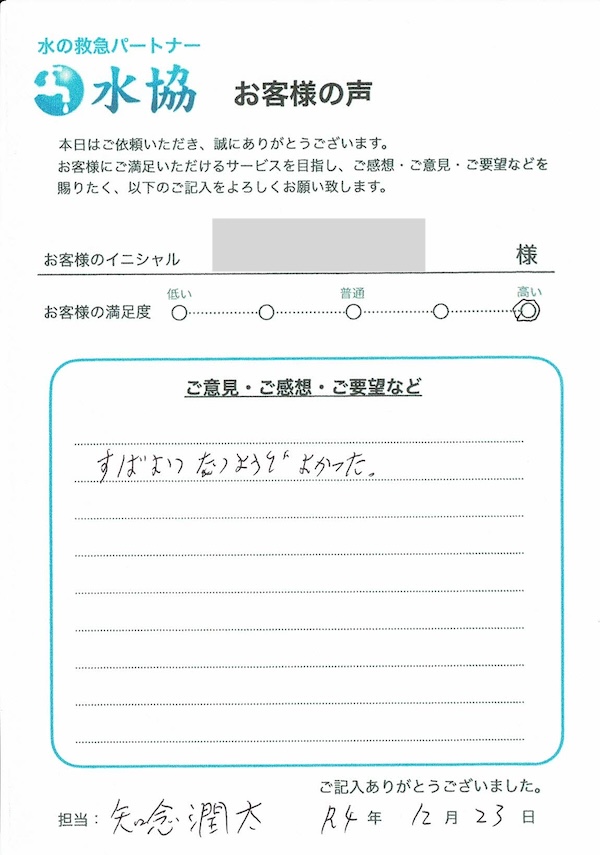 水の救急パートナー
水協 お客様の声
本日はご依頼いただき、誠にありがとうございます。
お客様にご満足いただけるサービスを目指し、ご感想・ご意見・ご要望などを
賜りたく、以下のご記入をよろしくお願い致します。
お客様のイニシャル 様
低い 普通 高い
お客様の満足度
ご意見・ご感想・ご要望など
すばやい たいおうで よかった。
ご記入ありがとうございました。
担当：知念潤太 R4年 12月 23日